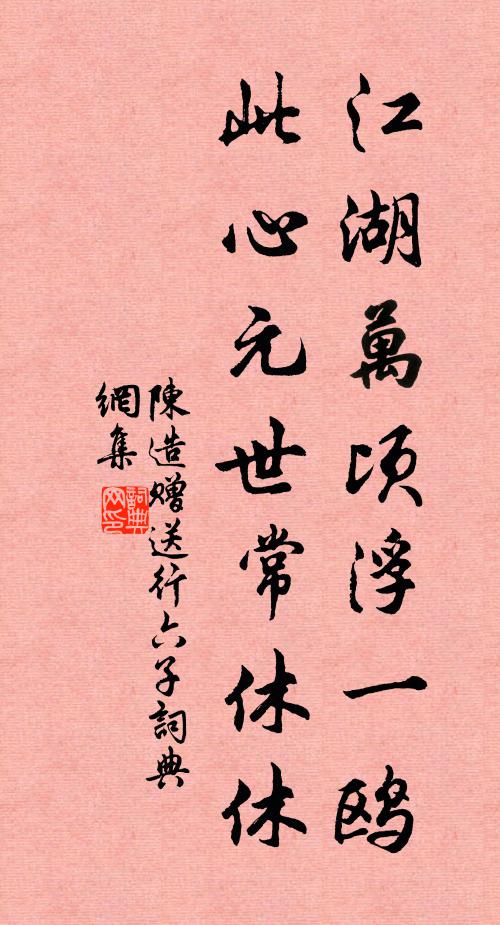 江湖萬頃浮一鸥
此心元世常休休
陳造赠送行六子詞典
網集
詞典网印